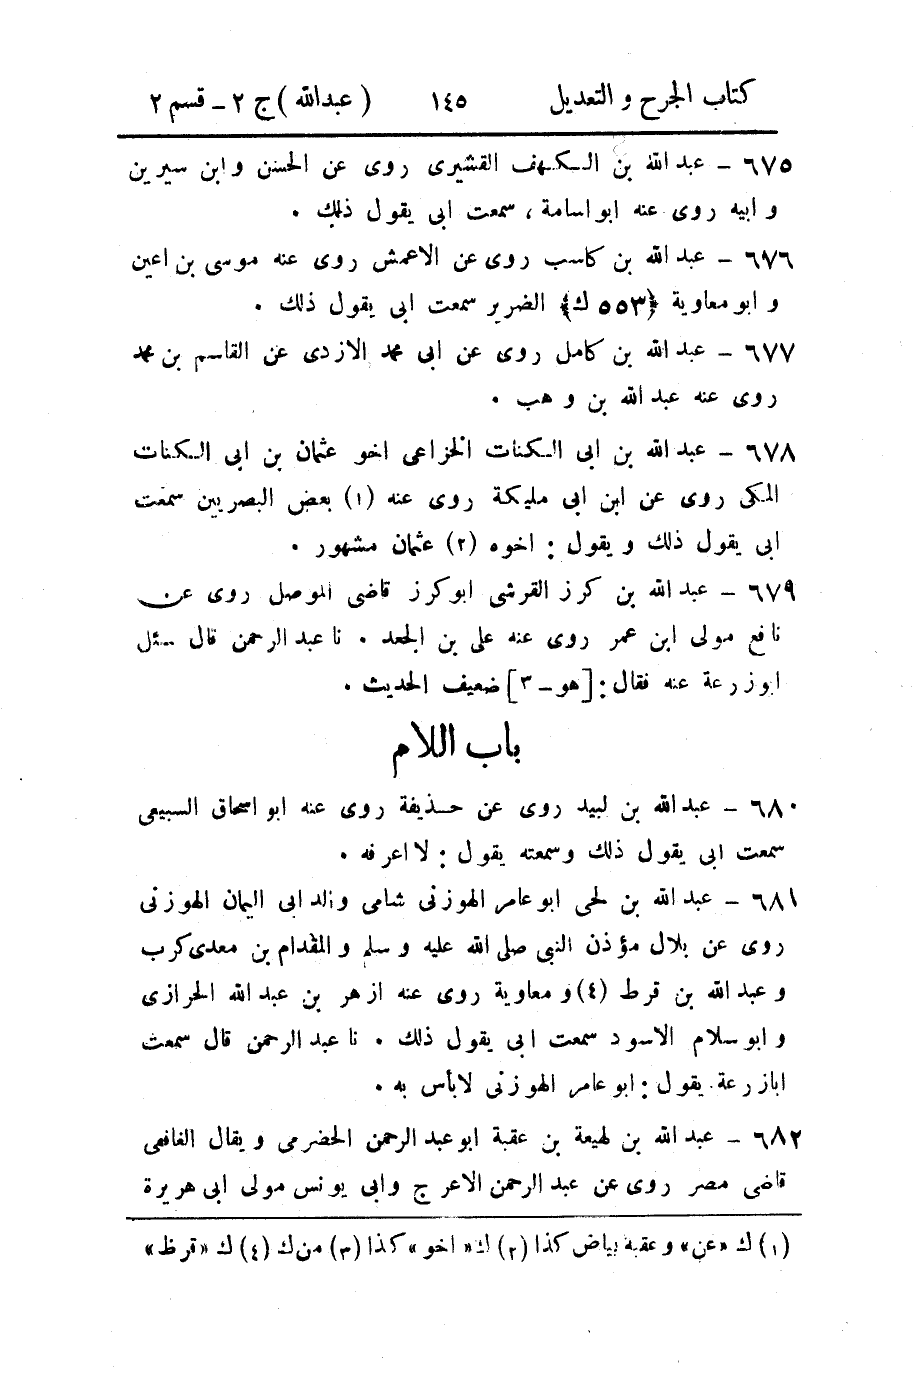 كتاب الجرح و التعديل ١٤٥ (عبدالله) ج ٢ - قسم ٢
٦٧٥ - عبد الله بن الكهف القشيرى روى عن الحسن وابن سيرين
و ابيه روى عنه ابو اسامة، سمعت ابى يقول ذلك .
٦٧٦ - عبد الله بن كاسب روى عن الاعمش روى عنه موسى بن اعين
و ابو معاوية {٥٥٣ ك} الضرير سمعت ابى يقول ذلك .
٦٧٧ - عبد الله بن كامل روى عن ابى محمد الازدى عن القاسم بن محمد
روى عنه عبد الله بن وهب .
٦٧٨ - عبد الله بن ابى الكنات الخزاعى اخو عثمان بن ابى الكنات
المكى روى عن ابن ابى مليكة روى عنه (١) بعض البصريين سمعت
ابى يقول ذلك و يقول : اخوه (٢) عثمان مشهور .
٦٧٩ - عبد الله بن كرز القرشى ابو كرز قاضى الموصل روى عن
نافع مولى ابن عمر روى عنه على بن الجعد . نا عبد الرحمن قال سئل
ابو زرعة عنه فقال : [هو - ٣] ضعيف الحديث .
باب اللام
٦٨٠ - عبد الله بن لبيد روى عن حذيفة روى عنه ابو اسحاق السبيعى
سمعت ابى يقول ذلك وسمعته يقول : لا اعرفه .
٦٨١ - عبد الله بن لحى ابو عامر الهوزنى شامى والد ابى اليمان الهوزنى
روى عن بلال مؤذن النبى صلى الله عليه و سلم و المقدام بن معدى كرب
و عبد الله بن قرط (٤) و معاوية روى عنه ازهر بن عبد الله الحرازى
و ابو سلام الاسود سمعت ابى يقول ذلك . نا عبد الرحمن قال سمعت
ابا زرعة يقول : ابو عامر الهوزنى لا بأس به .
٦٨٢ - عبد الله بن لهيعة بن عقبة ابو عبد الرحمن الحضرمى و يقال الغافقى
قاضى مصر روى عن عبد الرحمن الاعرج وابى يونس مولى ابى هريرة
(١) ك «عن» و عقبه بياض كذا (٢) ك «اخو» كذا (٣) من ك (٤) ك «قرظ»